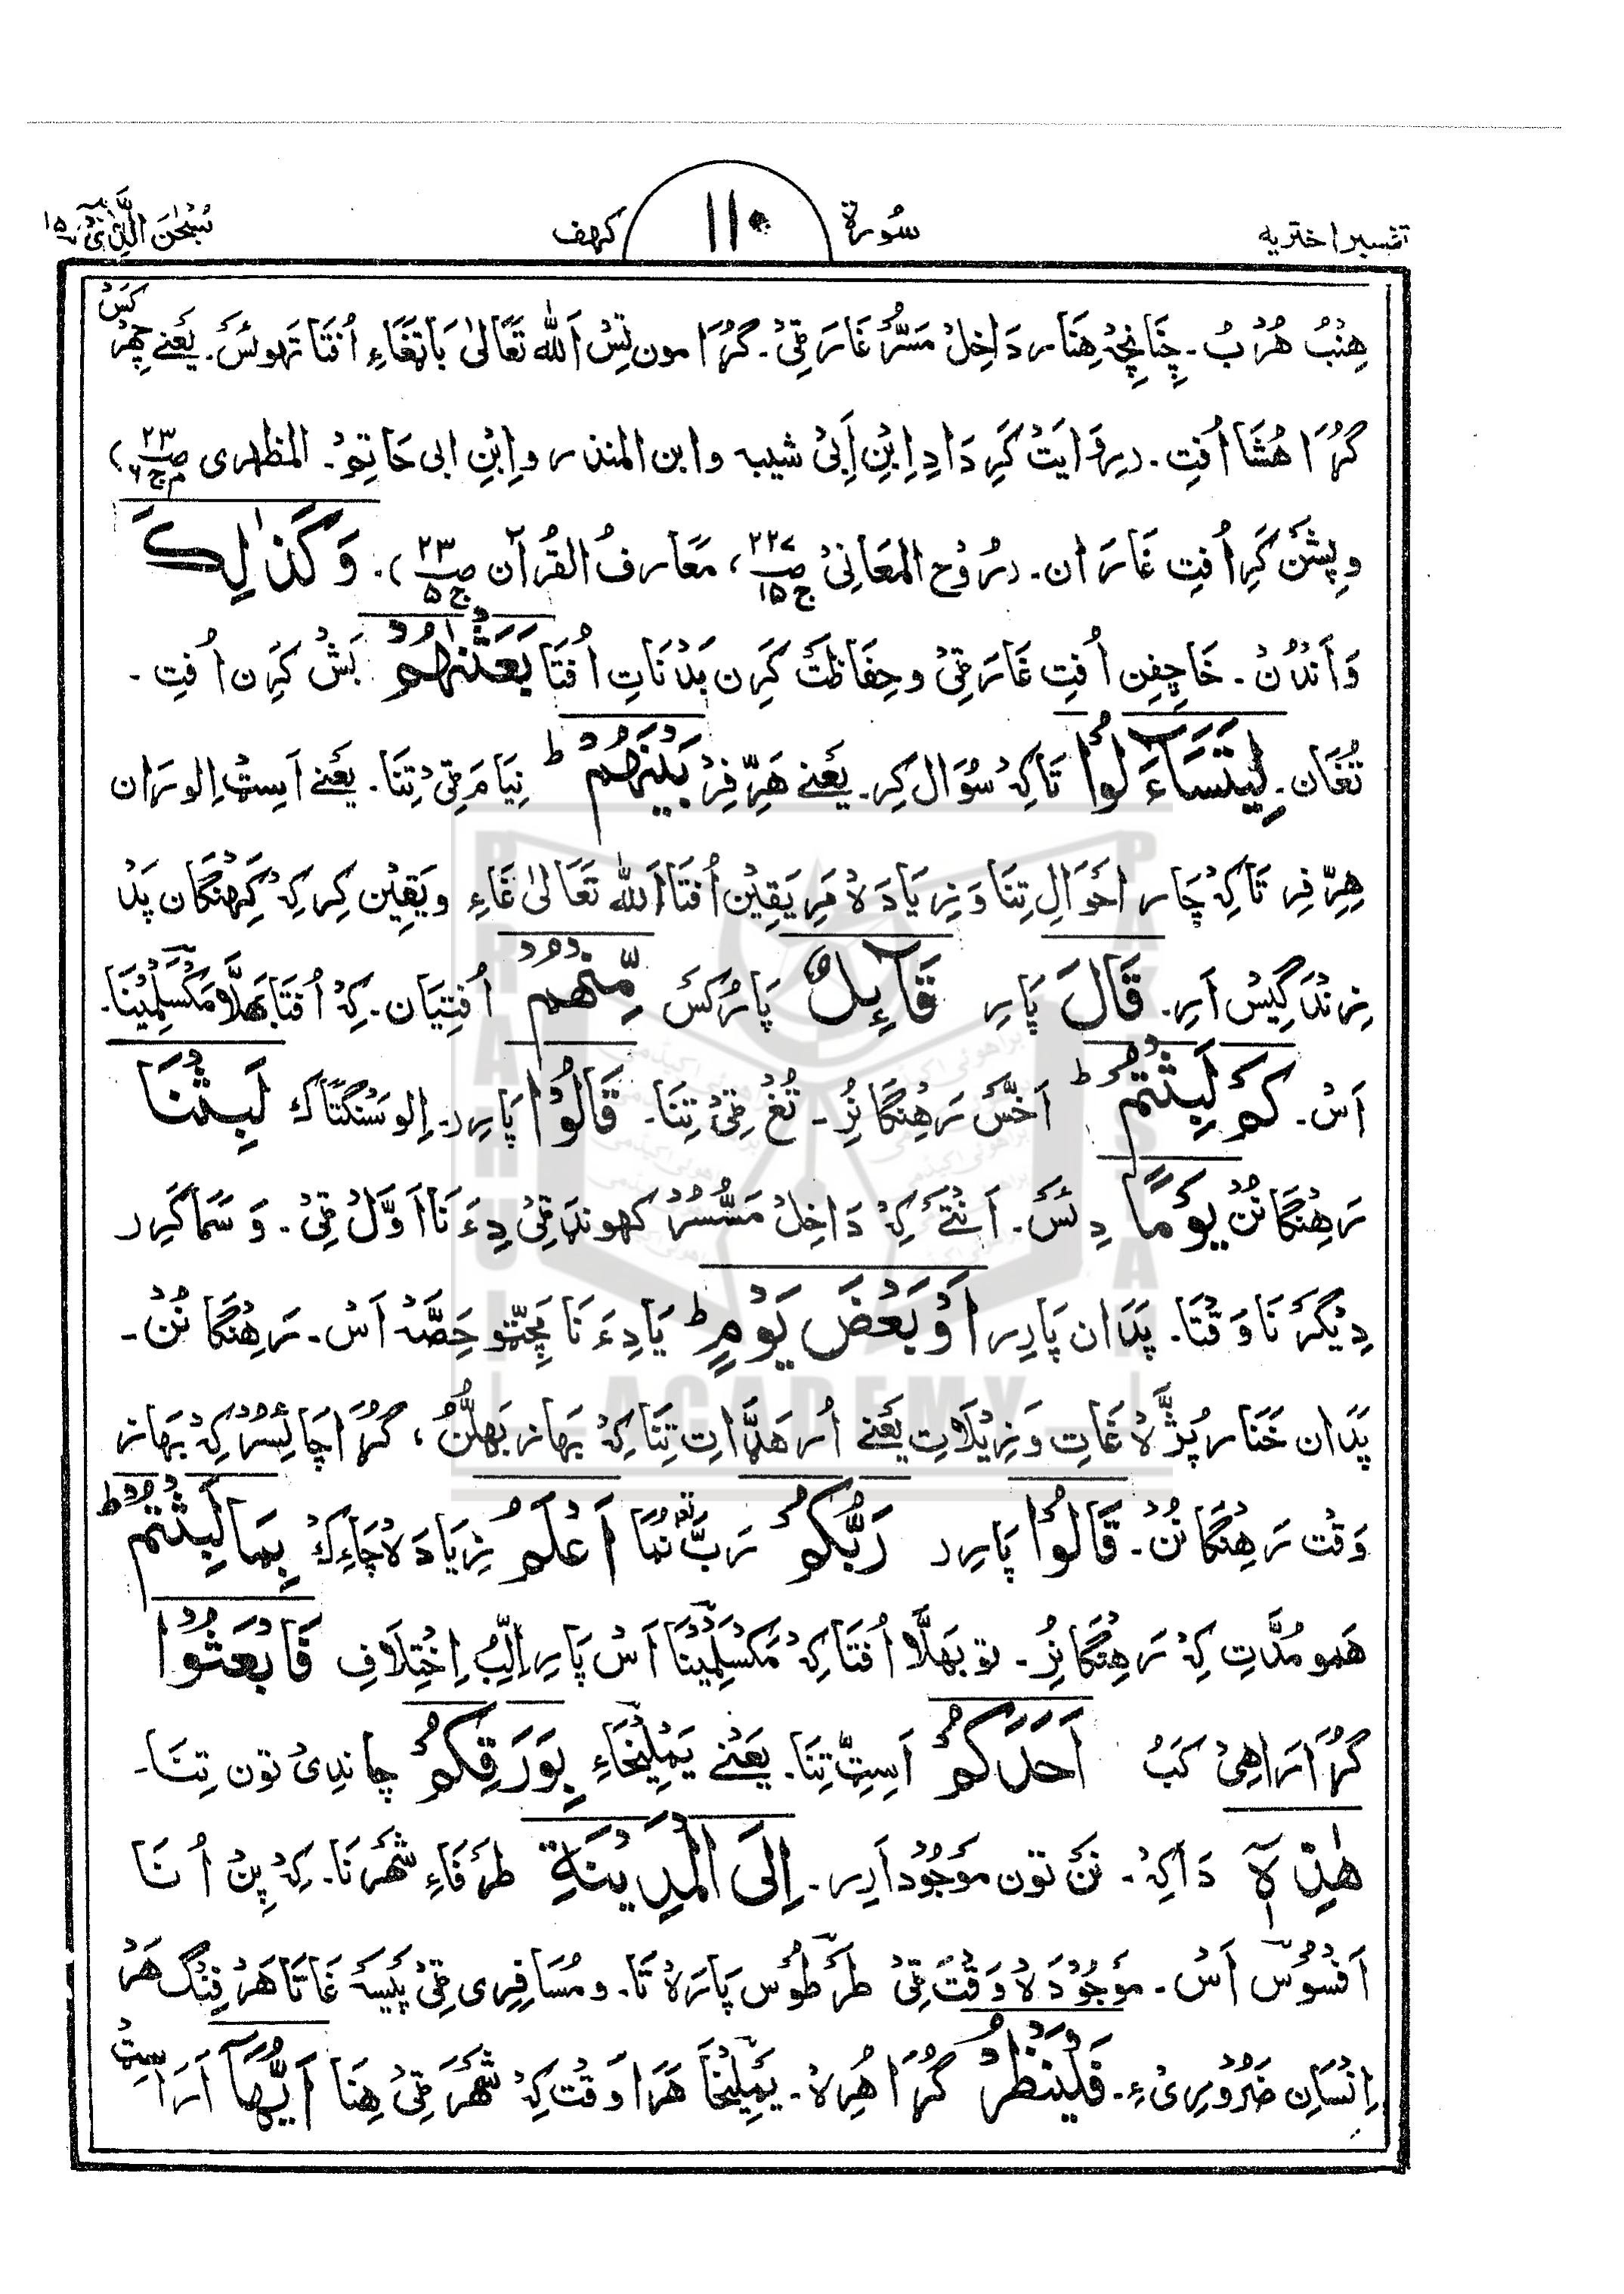 تفسیر اختریہ سُورۃ ۱۱۰ کہف سُبْحٰنَ الَّذِیْٓ ۱۵
ھِنْبُ ھُرْبُ۔ چَنَانچِہْ ھِنَار دَاخِلْ مَسُّرْ غَارَ ٹِیْ۔ گُڑَا مون تِسْ اَللّٰہ تَعَالیٰ بَاتِغَاءِ اُفتَا تَہوسَئ۔ یَعْنے چِھرْ کَسْ
گُڑَا ھُشَا اُفتِ۔ (رِوَایَتْ کَرِ دَادِ اِبْنِ اَبِیْ شیبہ وابن المنذر واِبْنِ ابی حَاتِمْ۔ المظہری صـ۲۳ ج۶)
وپِشَّنْ کَرِ اُفتِ غَارَان۔ (رُوْح المَعَانِیْ صـ۲۲۷ ج۱۵، مَعَارفُ القُرآن صـ۲۳ ج۵)۔ وَكَذٰلِكَ
وَاَنْدُنْ۔ خَاچِفِن اُفتِ غَارَ ٹِیْ وحِفَاظَتْ کَرِن بَدْنَاتِ اُفتَا بَعَثْنٰهُمْ بَشْ کَرِن اُفتِ۔
تُغَان۔ لِيَتَسَآءَلُوْا تَاکِہْ سُوَال کِر۔ یَعْنے ھَرِّفِرْ بَيْنَهُمْ ط نِیَامَ ٹِیْ تِنَا۔ یَعْنے اَسِٹْ اِلورَان
ھِرِّفِر تَاکِہْ چَار احْوَالِ تِنَا وَزِیَادَہْ مَرِ یَقِیْن اُفتَا اَللّٰہ تَعَالیٰ غَاءِ ویَقِیْن کِر کِہْ کَہِنْگان پَدْ
زِنْدَگِیْس اَرِ۔ قَالَ پَارِ قَآئِلٌ پَارُکَسْ مِّنْهُمْ اُفتِیَان۔ کِہْ اُفتَا بَھلَّا مَکْسَلْمِیْنَا۔
اَسْ۔ كَمْ لَبِثْتُمْ ط اَخَّسْ رَھِنْگانُرْ۔ تُغْ ٹِیْ تِنَا۔ قَالُوْا پَارِر۔ اِلوسَنْگَتَاک لَبِثْنَا
رَھِنْگانُنْ يَوْمًا دِئَسْ۔ اَنْتَےْ کِہْ دَاخِلْ مَسُّسُرْ کھونڈ ٹِیْ دِءَ نَا اَوَّلْ ٹِیْ۔ وَسَّمَا کَرِر
دِیْگَر نَا وَقْتَا۔ پَدَان پَارِر اَوْ بَعْضَ يَوْمٍ ط یَا دِءَ نَا مَچِٹو حِصَّہْ اَسْ۔ رَھِنْگانُنْ۔
پَدَان خَنَار پُڑْ لَاغَاتِ وَزِیْلَاتِ یَعْنے اُرھَڈَاتِ تِنَاکِہْ بَہاز بَھلُّنْ، گُڑَا چَائِسُرْ کِہْ بَہاز
وَقْت رَھِنْگانُنْ۔ قَالُوْا پَارِر رَبُّكُمْ رَبّ نُمَا اَعْلَمُ زِیَادَہْ چَاءِکْ بِمَا لَبِثْتُمْ ط
ھَمو مُدَّتِ کِہْ رَھِنْگانُرْ۔ تو بَھلَّا اُفتَا کِہْ مَکْسَلْمِیْنَا اَسْ پَارِ اِلِّبُ اِخْتِلَافِ فَابْعَثُوْا
گُڑَا رَاھِیْ کَبُ اَحَدَكُمْ اَسِٹّ تِنَا۔ یَعْنے یَمْلِیْخَاءِ بِوَرِقِكُمْ چاندِیْ تون تِنَا۔
هٰذِهٖۤ دَاکِہْ۔ نَنْ تون مَوْجُوْد اَرِر۔ اِلَى الْمَدِيْنَةِ طَرَفَاءِ شَھْرَنَا۔ کِہْ پِنْ اُنَا
اَفْسُوْس اَسْ۔ مَوْجُوْدَہْ وَقْتَ ٹِیْ طَرْطُوْس پَارَہْ تَا۔ ومُسَافِرِی ٹِیْ پَیْسَہْ غَاتَا ھَرْفِنْگ ھَرْ
اِنْسَانِ ضَرُوْرِیْ ءِ۔ فَلْيَنْظُرْ گُڑَا ھُرِہْ۔ یَمْلِیْخَا ھَرَا وَقْت کِہْ شَھْرَ ٹِیْ ھِنَا اَيُّهَاۤ اَرَا سِٹْ